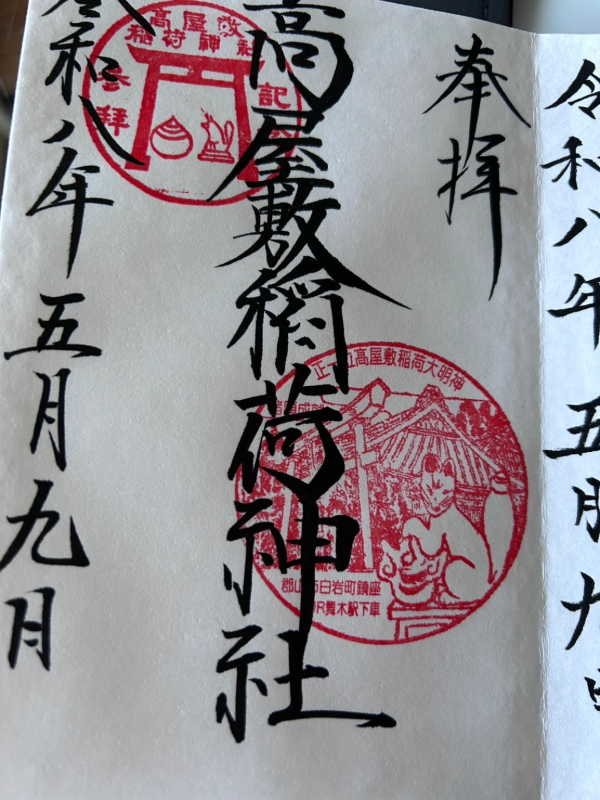 令和八年五月九
奉拝
高屋敷稲荷神社
正一位高屋敷稲荷大明神
郡山市白岩町鎮座
JR舞木駅下車
高屋敷
稲荷神社
参拝
記
令和八年五月九月